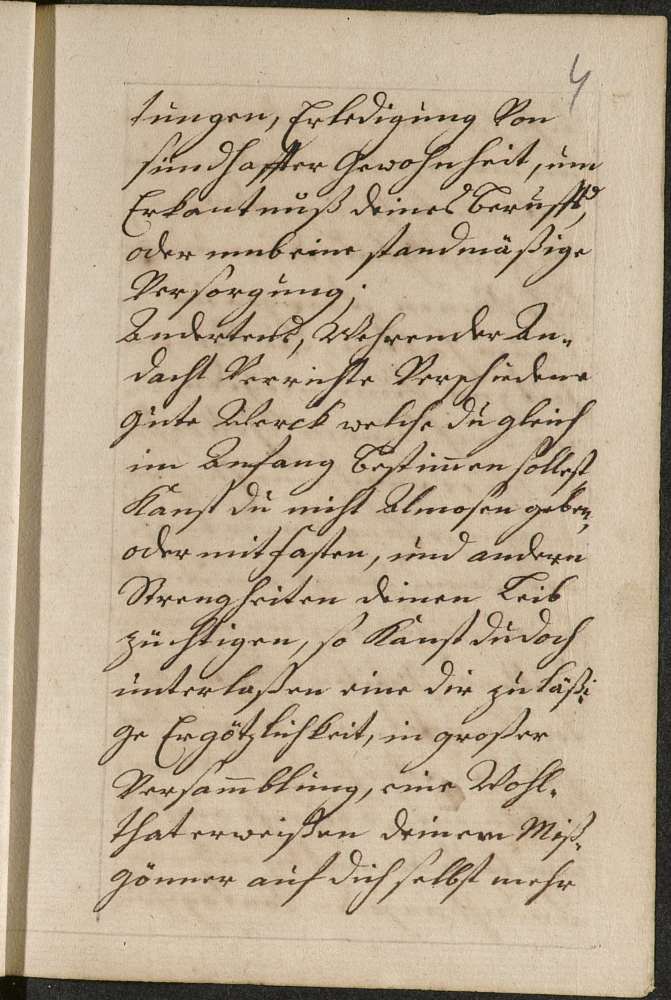 4
tungen, Erledigung Von
sündhaffter Gewohnheit, um
Erkantnuß deines beruffs,
oder umb eine standmäßige
Versorgung.
Andertens, Wehrender An„
dacht Verrichte Verschiedene
gute Werck welche du gleich
im Anfang bestimmen sollest
Kanst du nicht Almosen geben,
oder mit fasten, und andern
Strengheiten deinen Leib
züchtigen, so Kanst du doch
unterlaßen eine dir zuläßi„
ge Ergötzlichkeit, in großer
Versammblung, eine Wohl„
that erweißen deinem Miß„
gönner auf dich selbst mehr